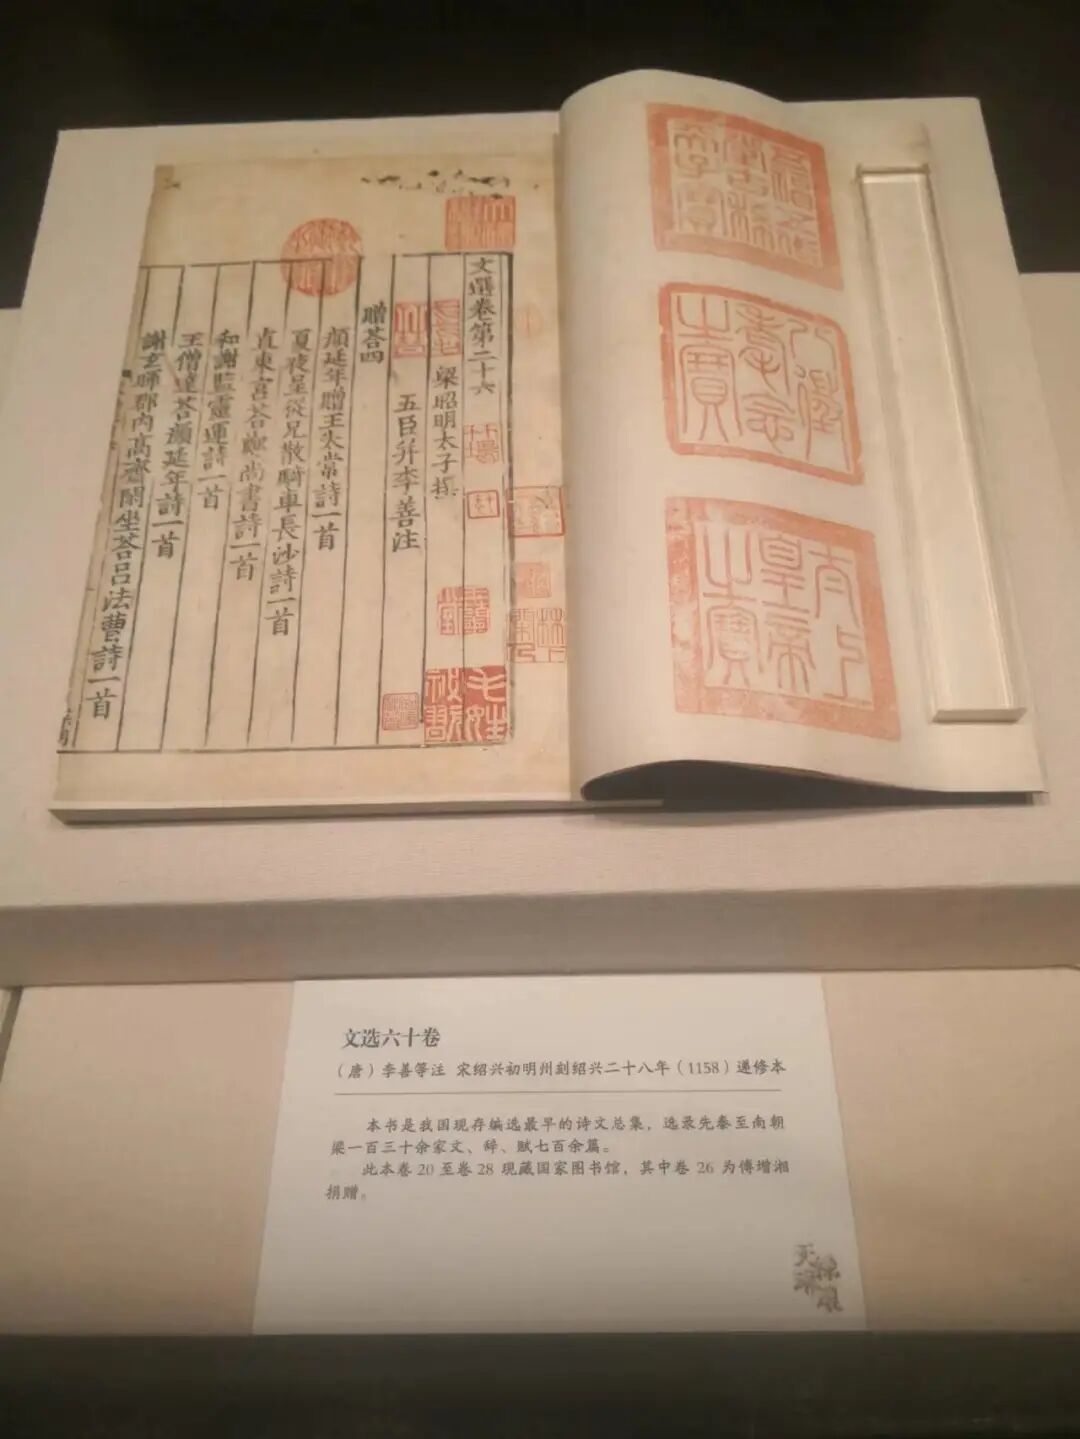 文選卷第二十六
梁昭明太子撰
五臣并李善注
贈荅四
顔延年贈王太常詩一首
夏夜呈從兄散騎車長沙詩一首
直東宫荅鄭尚書詩一首
和謝監靈運詩一首
王僧達荅顔延年詩一首
謝玄暉郡内高齋閑坐荅吕法曹詩一首
毛姓祕翫
五福五代堂古稀天子寶
八徵耄念之寶
太上皇帝之寶
文选六十卷
（唐）李善等注 宋绍兴初明州刻绍兴二十八年（1158）递修本
本书是我国现存编选最早的诗文总集，选录先秦至南朝
梁一百三十余家文、辞、赋七百余篇。
此本卷 20 至卷 28 现藏国家图书馆，其中卷 26 为傅增湘
捐赠。